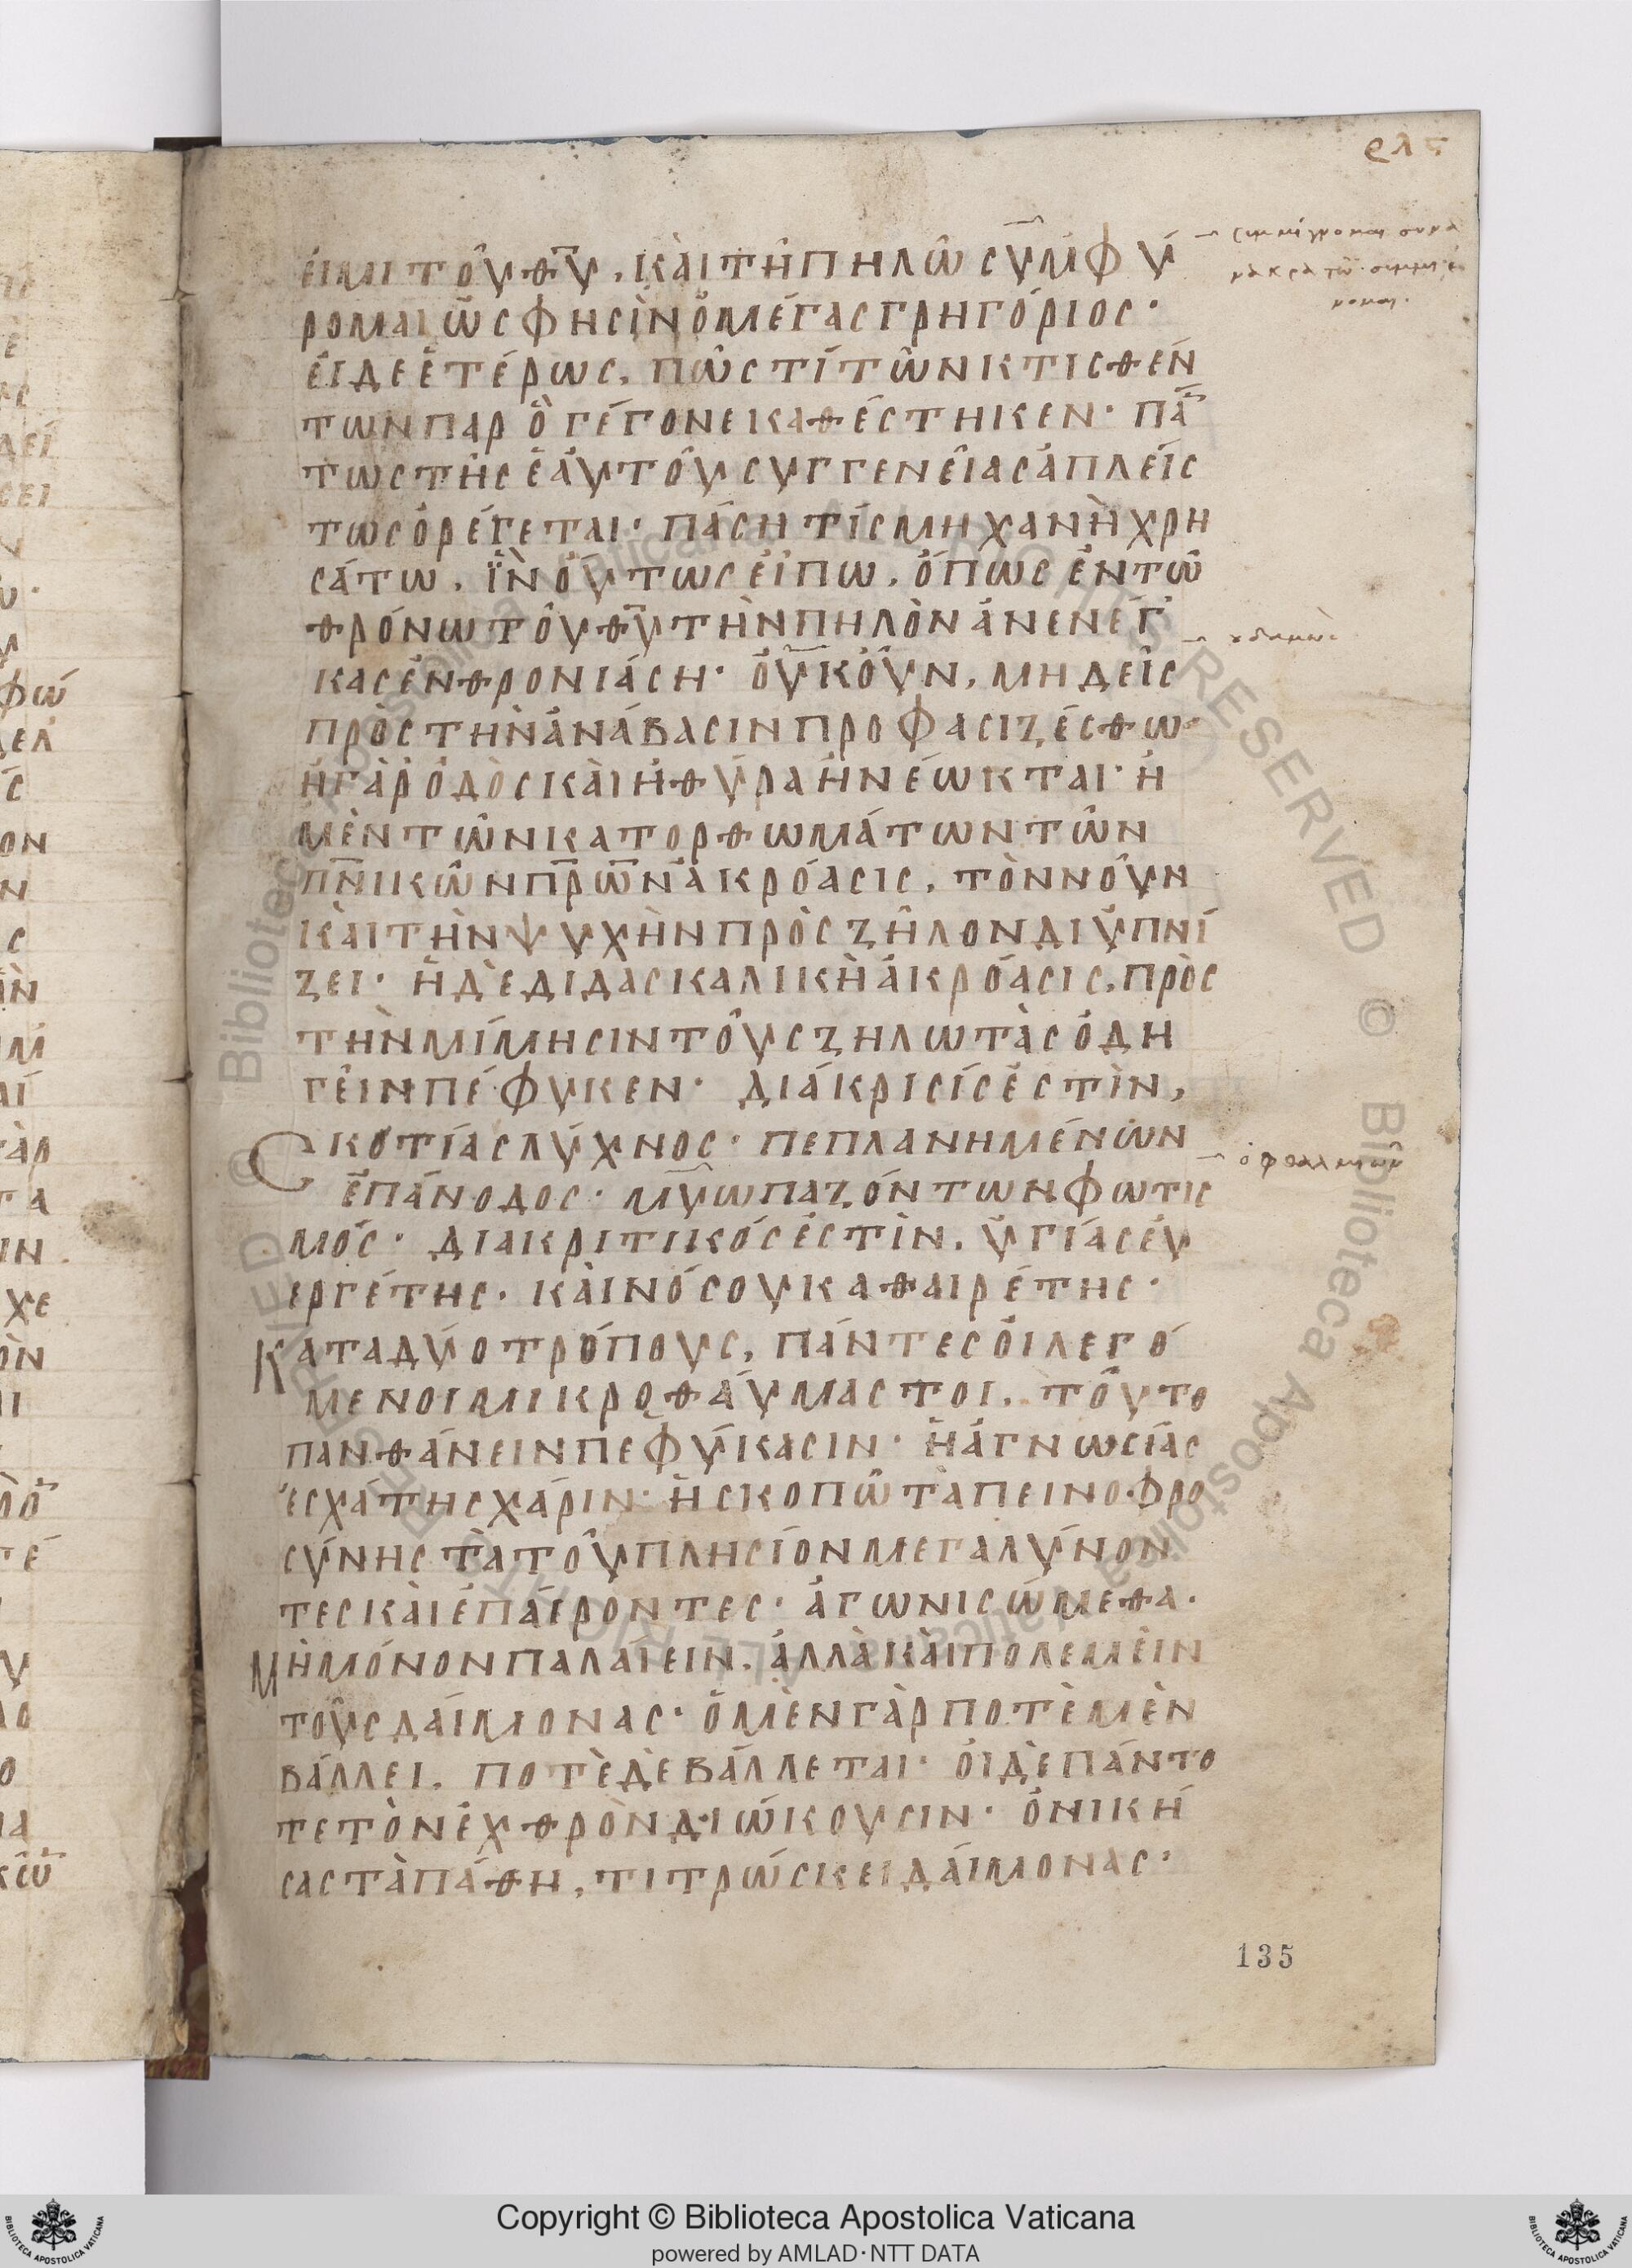 ρλς
ἐιμὶ τοῦ θῦ, κὰι τῆ πηλῶ συμφύ
ρομαι ὥς φησὶν ὁ μέγας γρηγόριος·
ἐι δε ἑτέρως, πῶς τί τῶν κτισθέν
των παρ ὃ γέγονε καθέστηκεν· πᾶ
τως τῆς ἑαυτοῦ συγγενείας ἀπλείς
τως ὀρέγεται· πάση τίς μηχανὴ χρη
σάτω, ἵν ὁύτως ἐίπω, ὅπως ἐν τῶ
θρόνω τοῦ θῦ τὴν πηλὸν ἀνενέγ
κας ἐνθρονιάση· ὀυκοῦν, μηδεὶς
πρὸς τὴν ἀνάβασιν προφασιζέσθω·
ἡ γὰρ ὁδὸς κὰι ἡ θύρα ἠνέωκται· ἡ
μὲν τῶν κατορθωμάτων τῶν
πνικῶν πρων ἀκρόασις, τὸν νοῦν
κὰι τὴν ψυχὴν πρὸς ζῆλον διυπνί
ζει· ἡ δὲ διδασκαλικὴ ἀκρόασις, πρὸς
τὴν μίμησιν τοὺς ζηλωτὰς ὁδη
γεῖν πέφυκεν· διάκρισίς ἐστὶν,
Σκοτίας λύχνος· πεπλανημένων
ἐπάνοδος· μυωπαζόντων φωτις
μός· διακριτικός ἐστὶν, ὑγίας ἐυ
εργέτης· κὰι νόσου καθαιρέτης·
Κατα δύο τρόπους, πάντες ὁι λεγό
μενοι μικροθαύμαστοι, τοῦτο
πανθάνειν πεφύκασιν· ἢ ἀγνωσίας
ἐσχάτης χάριν· ἢ σκοπῶ ταπεινοφρο
σύνης τὰ τοῦ πλησίον μεγαλύνον
τες κὰι ἐπαίροντες· ἀγωνισώμεθα·
Μὴ μόνον παλαίειν, ἀλλὰ κὰι πολεμεῖν
τοὺς δαίμονας· ὁ μὲν γὰρ ποτὲ μὲν
βάλλει, ποτὲ δὲ βάλλεται· ὁι δὲ πάντο
τε τὸν ἐχθρὸν διώκουσιν· ὁ νική
σας τὰ πάθη, τιτρώσκει δαίμονας·
ὀφθαλμιών
135
Copyright © Biblioteca Apostolica Vaticana
powered by AMLAD·NTT DATA